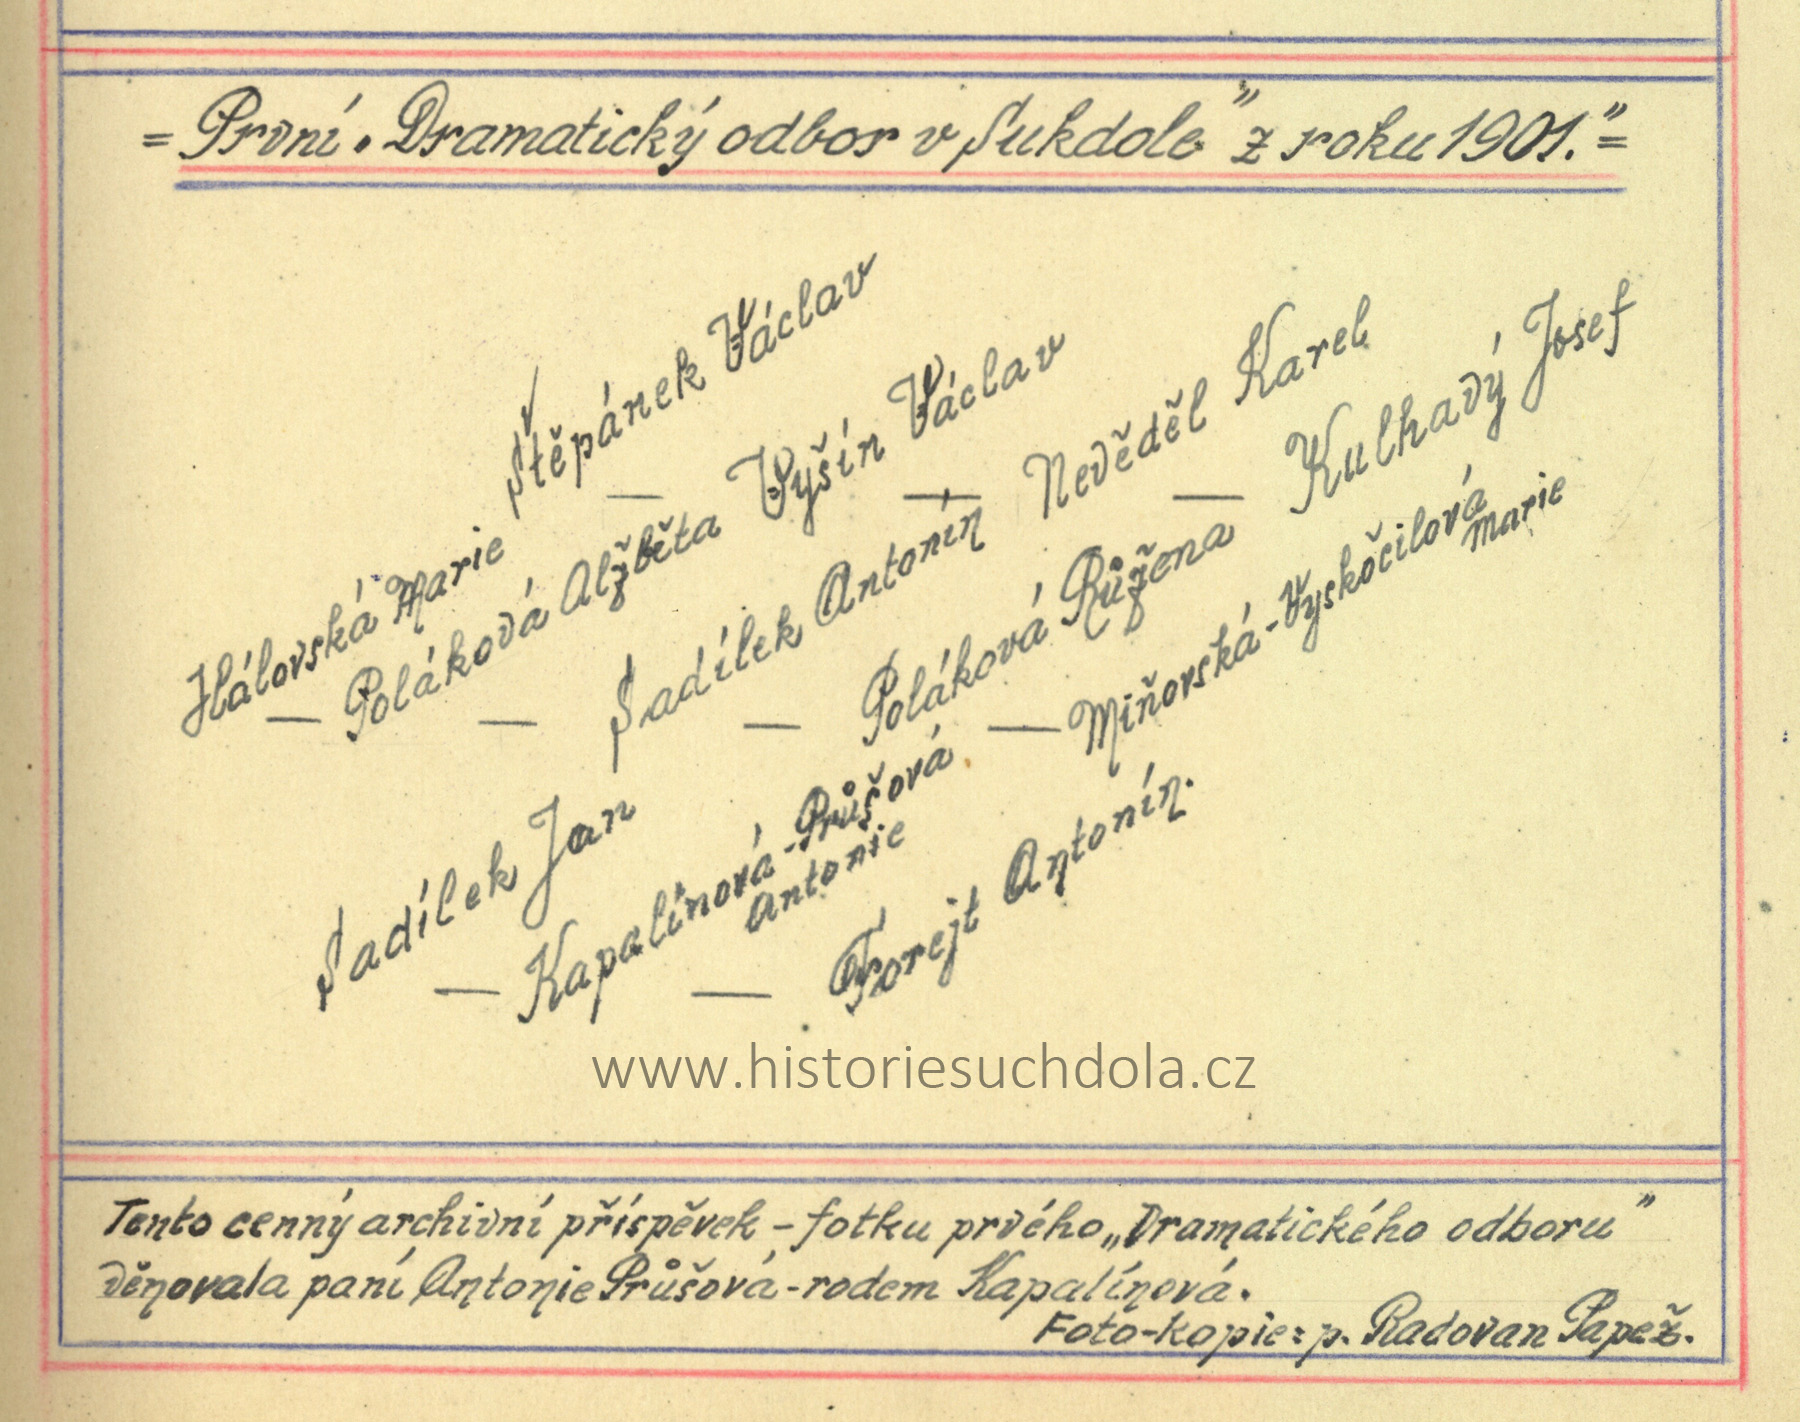 = První „Dramatický odbor v Sukdole" z roku 1901." =
Štěpánek Václav — Vyšín Václav — Neděděl Karel — Kulhavý Josef
Hálovská Marie — Poláková Alžběta — Sadílek Antonín — Poláková Růžena — Miňovská-Vyskočilová Marie
Sadílek Jan — Kapalínová-Průšová Antonie — Forejt Antonín.
www.historiesuchdola.cz
Tento cenný archivní příspěvek – fotku prvého „Dramatického odboru"
děnovala paní Antonie Průšová - rodem Kapalínová.
Foto-kopie: p. Radovan Papež.